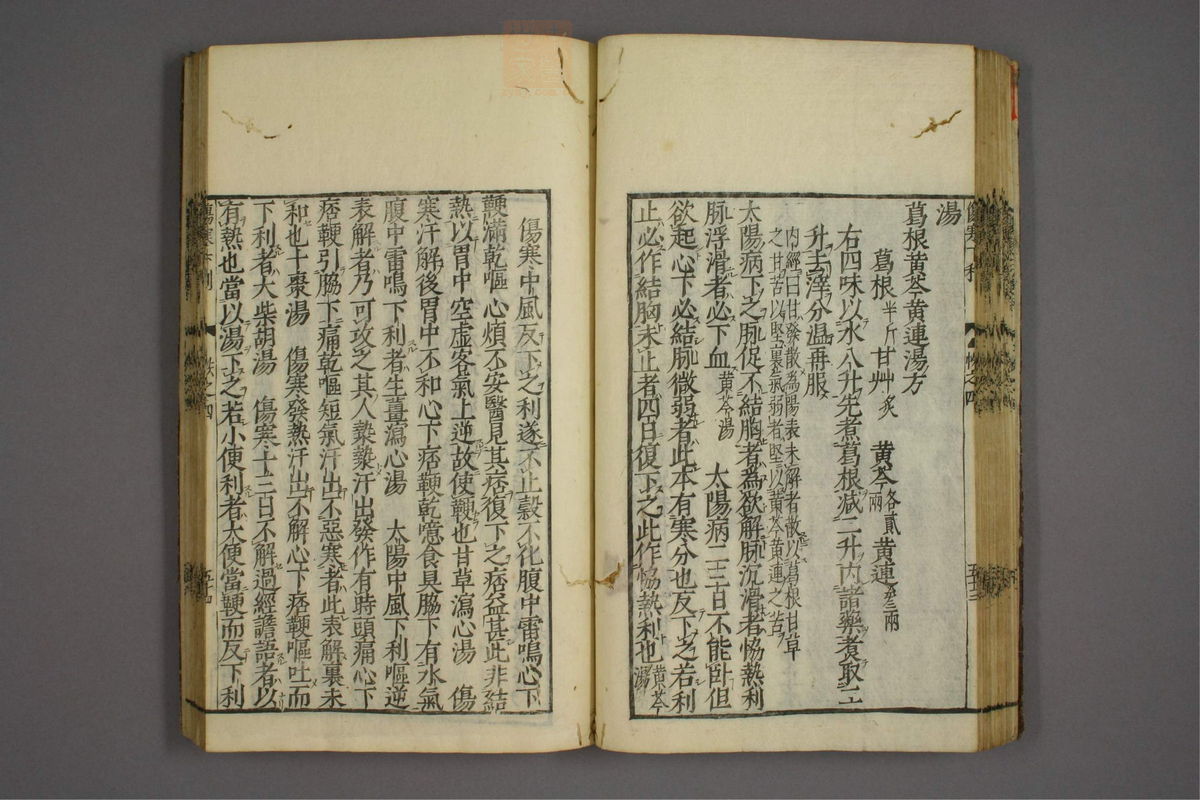 湯
葛根黄芩黄連湯方
葛根半斤 甘艸炙 黄芩各貳兩 黄連叁兩
右四味以水八升先煮葛根减二升内諸藥煮取二
升去滓分温再服
内經曰甘發散爲陽表未解者散以葛根甘草
之甘苦以堅裏氣弱者堅以黄芩黄連之苦
太陽病下之脉促不結胸者爲欲解脉沉滑者恊熱利
脉浮滑者必下血黄芩湯 太陽病二三日不能卧但
欲起心下必結脉微弱者此本有寒分也反下之若利
止必作結胸未止者四日復下之此作恊熱利也黄芩湯
傷寒中風反下之利遂不止穀不化腹中雷鳴心下
鞕滿乾嘔心煩不安醫見其痞復下之痞益甚此非結
熱以胃中空虚客氣上逆故使鞕也甘草瀉心湯 傷
寒汗解後胃中不和心下痞鞕乾噫食臭脇下有水氣
腹中雷鳴下利者生薑瀉心湯 太陽中風下利嘔逆
表解者乃可攻之其人漐漐汗出發作有時頭痛心下
痞鞕引脇下痛乾嘔短氣汗出不惡寒者此表解裏未
和也十棗湯 傷寒發熱汗出不解心下痞鞕嘔吐而
下利者大柴胡湯 傷寒十三日不解過經譫語者以
有熱也當以湯下之若小便利者大便當鞕而反下利